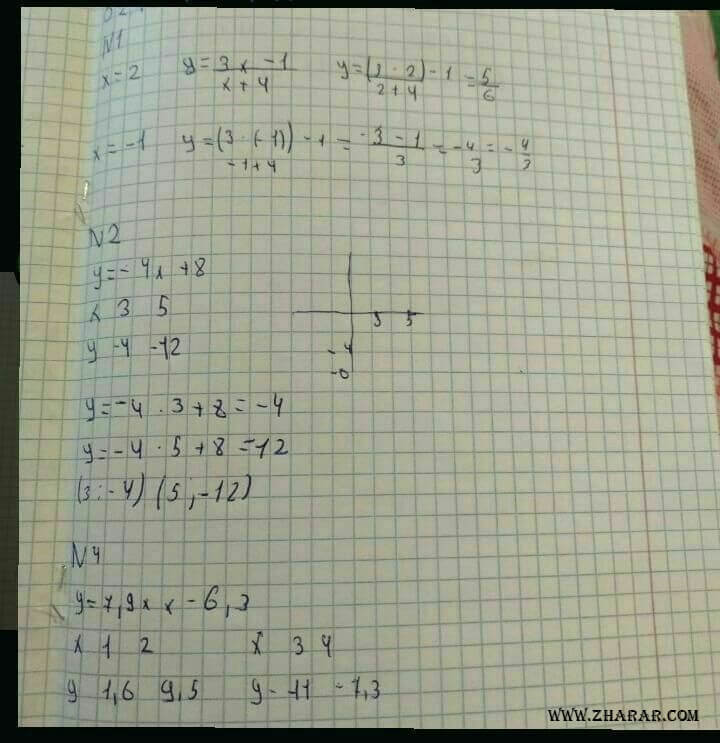 N1
x = 2 y = 3x - 1 / x + 4 y = (3 · 2) - 1 / 2 + 4 = 5/6
x = -1 y = (3 · (-1)) - 1 / -1 + 4 = -3 - 1 / 3 = -4/3 = -4/3
N2
y = - 4x + 8
x 3 5
y -4 -12
3 5
-4
y = -4 · 3 + 8 = -4
y = -4 · 5 + 8 = -12
(3 ; -4) (5 ; -12)
N4
y = 7,9 x x - 6,3
x 1 2 x 3 4
y 1,6 9,5 y - 11 - 7,3
WWW.ZHARAR.COM